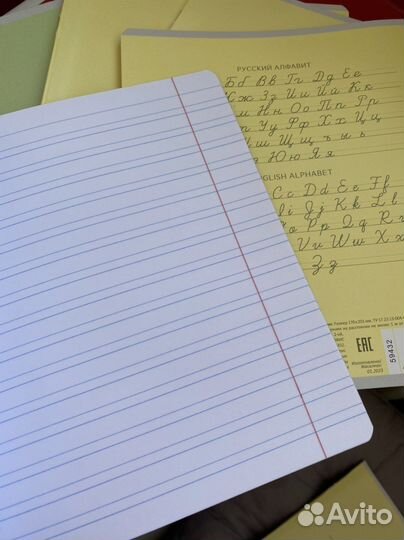 РУССКИЙ АЛФАВИТ
Бб Вв Гг Дд Ее
Жж Зз Ии Йй Кк
Мм Нн Оо Пп Рр
Уу Фф Хх Цц
Шш Щщ ъ ы ь
Юю Яя
ENGLISH ALPHABET
Cc Dd Ee Ff
Ii Jj Kk Ll
Oo Pp Qq Rr
Uu Vv Ww Xx
Zz
EAC
59432
Avito